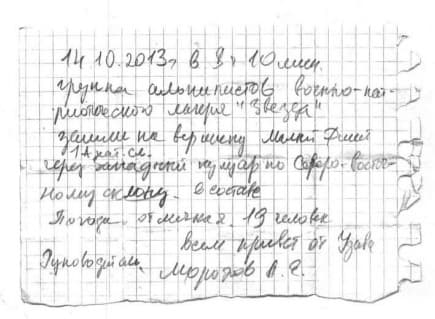 14 10.2013г в 9ч 10 мин.
группа альпинистов военно-пат-
риотического лагеря "Звезда"
зашли на вершину Малый
1А кат. сл.
через западный по Северо-Восто-
ному склону. в составе
Погода отличная. 19 человек
всем привет от
Руководитель. Морозов А. Г.